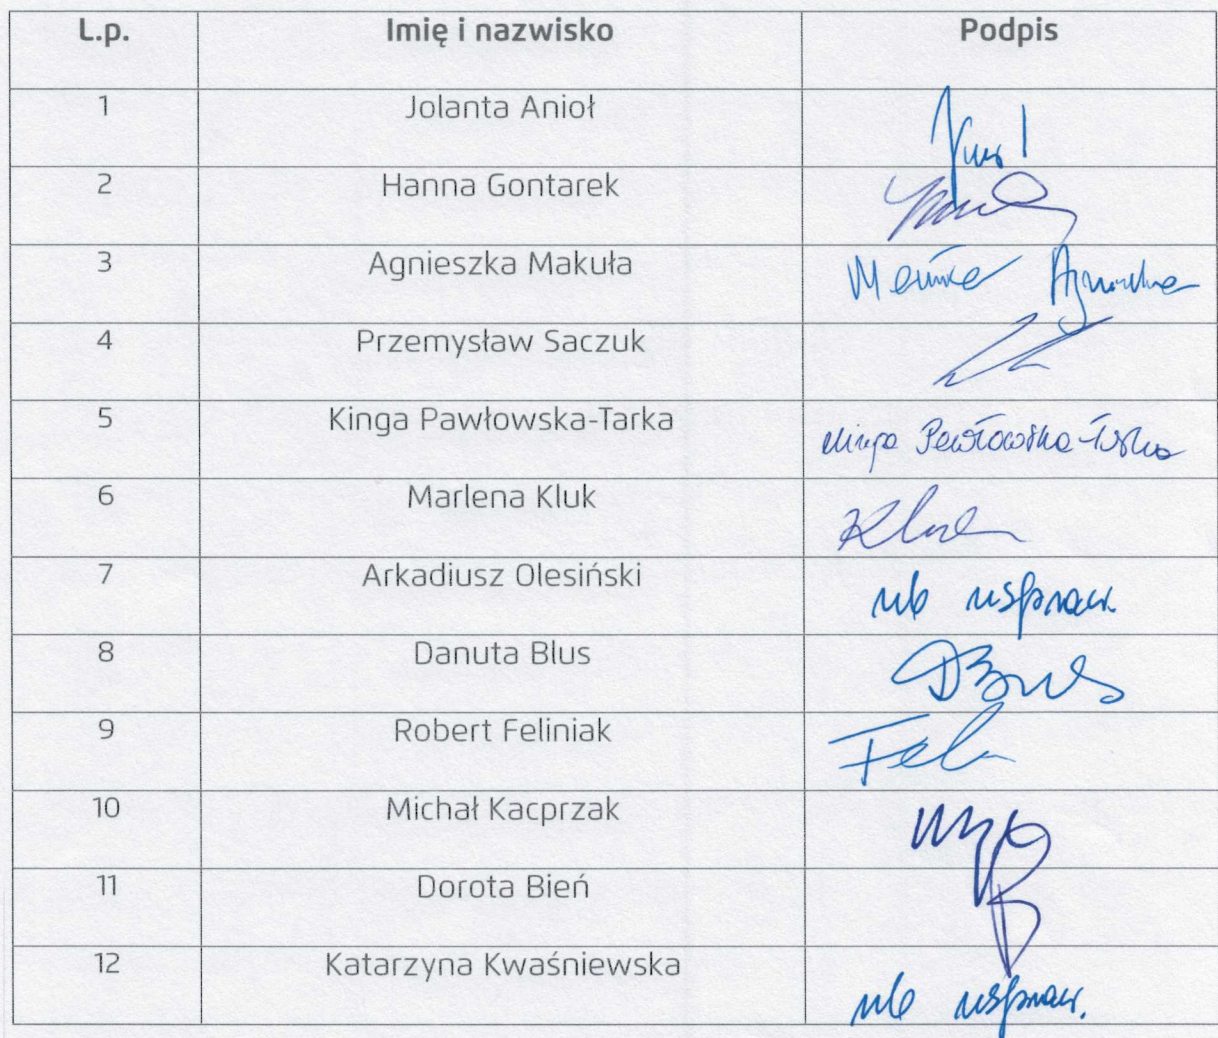 L.p. Imię i nazwisko Podpis
1 Jolanta Anioł
2 Hanna Gontarek
3 Agnieszka Makuła
4 Przemysław Saczuk
5 Kinga Pawłowska-Tarka Kinga Pawłowska-Tarka
6 Marlena Kluk
7 Arkadiusz Olesiński nb uspraw.
8 Danuta Blus DBlus
9 Robert Feliniak
10 Michał Kacprzak
11 Dorota Bień
12 Katarzyna Kwaśniewska nb uspraw.